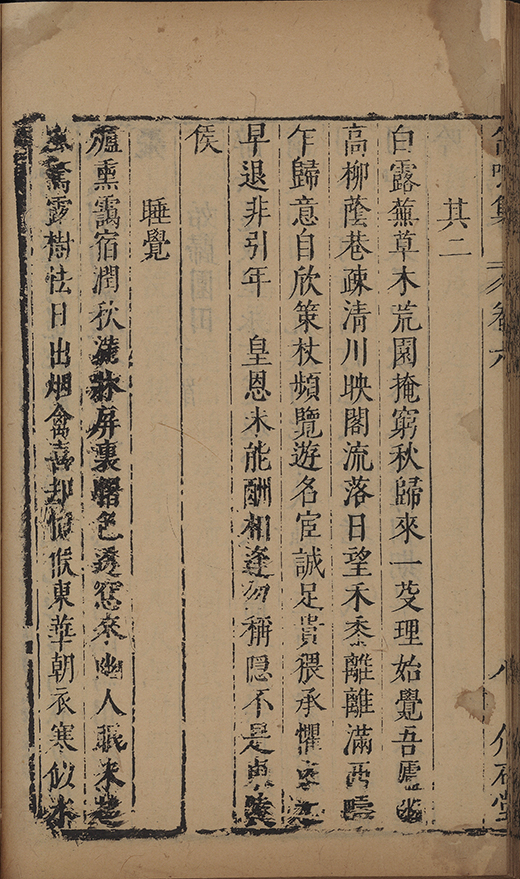 集 卷六 八 介石堂
其二
白露蕪草木荒園掩窮秋歸來一芟理始覺吾廬幽
高柳蔭巷疎清川映閣流落日望禾黍離離滿西疇
乍歸意自欣策杖頻覽遊名宦誠足貴猥承懼
早退非引年 皇恩未能酬相逢勿稱隐不是東陵
侯
睡覺
爐熏靄宿潤秋屏裏曙色透窓來幽人眠未起
驚露樹怯日出烟禽喜却似候東華朝衣寒似水